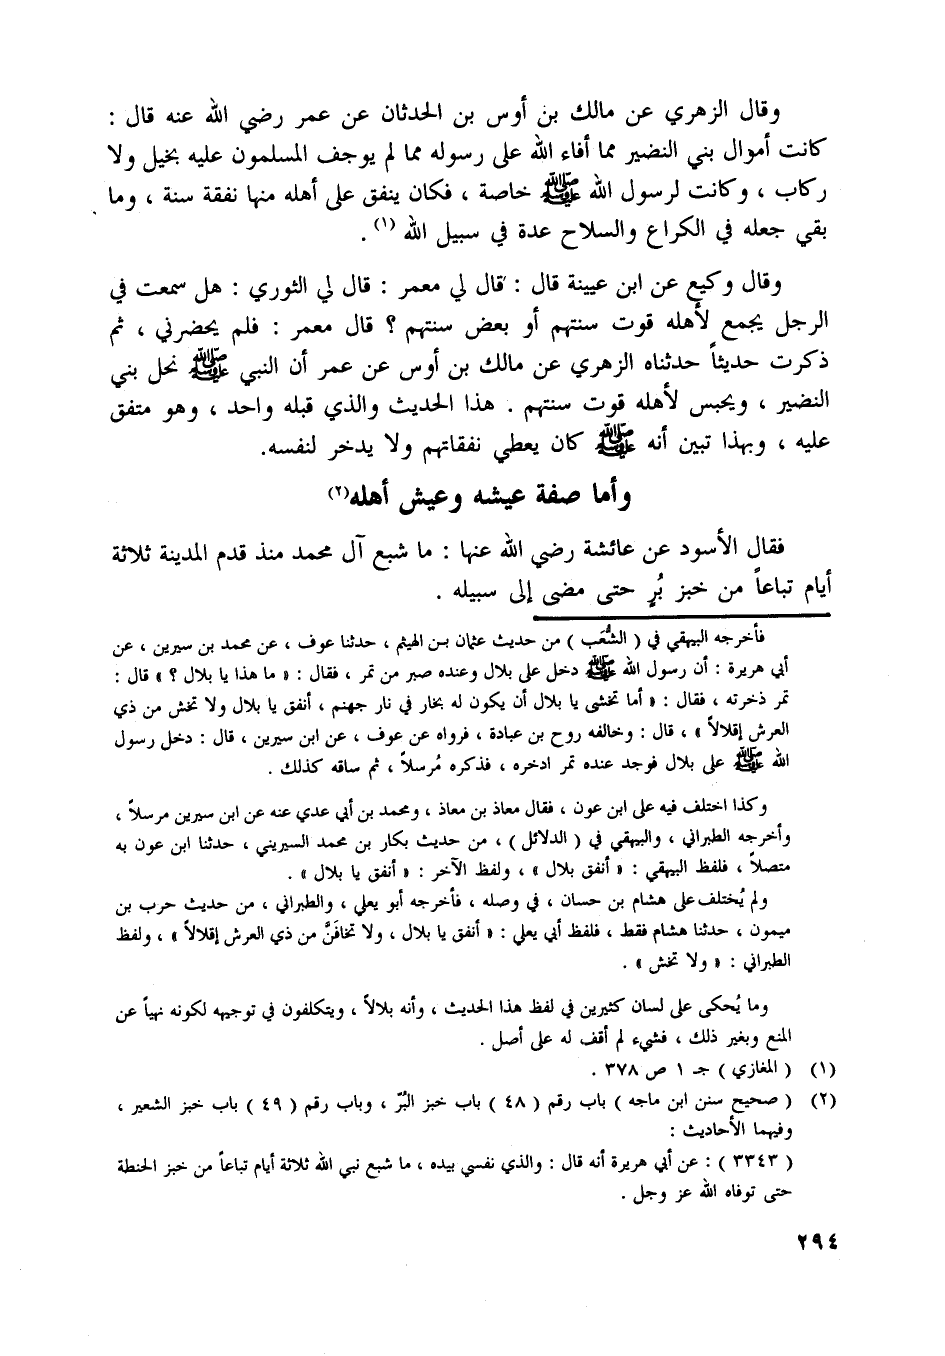 وقال الزهري عن مالك بن أوس بن الحدثان عن عمر رضي الله عنه قال :
كانت أموال بني النضير مما أفاء الله على رسوله مما لم يوجف المسلمون عليه بخيل ولا
ركاب ، وكانت لرسول الله ﷺ خاصة ، فكان ينفق على أهله منها نفقة سنة ، وما
بقي جعله في الكراع والسلاح عدة في سبيل الله (١) .
وقال وكيع عن ابن عيينة قال : قال لي معمر : قال لي الثوري : هل سمعت في
الرجل يجمع لأهله قوت سنتهم أو بعض سنتهم ؟ قال معمر : فلم يحضرني ، ثم
ذكرت حديثاً حدثناه الزهري عن مالك بن أوس عن عمر أن النبي ﷺ نخل بني
النضير ، ويحبس لأهله قوت سنتهم . هذا الحديث والذي قبله واحد ، وهو متفق
عليه ، وبهذا تبين أنه ﷺ كان يعطي نفقاتهم ولا يدخر لنفسه.
وأما صفة عيشه وعيش أهله(٢)
فقال الأسود عن عائشة رضي الله عنها : ما شبع آل محمد منذ قدم المدينة ثلاثة
أيام تباعاً من خبز بُرٍ حتى مضى إلى سبيله .
فأخرجه البيهقي في ( الشُّعَب ) من حديث عثمان بن الهيثم ، حدثنا عوف ، عن محمد بن سيرين ، عن
أبي هريرة : أن رسول الله ﷺ دخل على بلال وعنده صبر من تمر ، فقال : « ما هذا يا بلال ؟ » قال :
تمر ذخرته ، فقال : « أما تخشى يا بلال أن يكون له بخار في نار جهنم ، أنفق يا بلال ولا تخش من ذي
العرش إقلالاً » ، قال : وخالفه روح بن عبادة ، فرواه عن عوف ، عن ابن سيرين ، قال : دخل رسول
الله ﷺ على بلال فوجد عنده تمر ادخره ، فذكره مُرسلاً ، ثم ساقه كذلك .
وكذا اختلف فيه على ابن عون ، فقال معاذ بن معاذ ، ومحمد بن أبي عدي عنه عن ابن سيرين مرسلاً ،
وأخرجه الطبراني ، والبيهقي في ( الدلائل ) ، من حديث بكار بن محمد السيريني ، حدثنا ابن عون به
متصلاً ، فلفظ البيهقي : « أنفق بلال » ، ولفظ الآخر : « أنفق يا بلال » .
ولم يُختلف على هشام بن حسان ، في وصله ، فأخرجه أبو يعلي ، والطبراني ، من حديث حرب بن
ميمون ، حدثنا هشام فقط ، فلفظ أبي يعلي : « أنفق يا بلال ، ولا تخافَنَّ من ذي العرش إقلالاً » ، ولفظ
الطبراني : « ولا تخش » .
وما يُحكى على لسان كثيرين في لفظ هذا الحديث ، وأنه بلالاً ، ويتكلفون في توجيهه لكونه نهياً عن
المنع وبغير ذلك ، فشيء لم أقف له على أصل .
(١) ( المغازي ) جـ ١ ص ٣٧٨ .
(٢) ( صحيح سنن ابن ماجه ) باب رقم ( ٤٨ ) باب خبز البُرّ ، وباب رقم ( ٤٩ ) باب خبز الشعير ،
وفيهما الأحاديث :
( ٣٣٤٣ ) : عن أبي هريرة أنه قال : والذي نفسي بيده ، ما شبع نبي الله ثلاثة أيام تباعاً من خبز الحنطة
حتى توفاه الله عز وجل .
٢٩٤